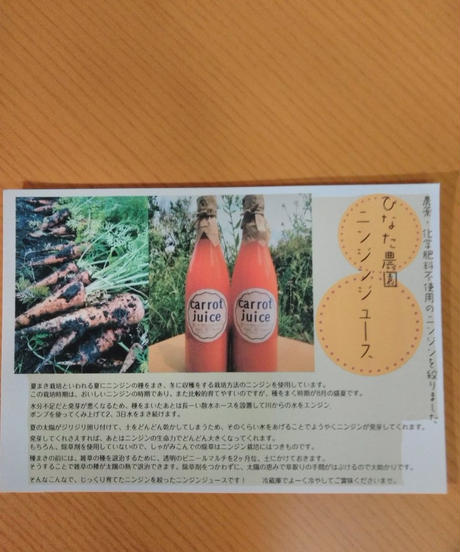 農薬・化学肥料不使用のニンジンを絞りました。
ひなた農園
ニンジンジュース
carrot
juice
carrot
juice
夏まき栽培といわれる夏にニンジンの種をまき、冬に収穫をする栽培方法のニンジンを使用しています。
この栽培時期は、おいしいニンジンの時期であり、また比較的育てやすいのですが、種をまく時期が8月の盛夏です。
水分不足だと発芽が悪くなるため、種をまいたあとは長ーい散水ホースを設置して川からの水をエンジン
ポンプを使ってくみ上げて2、3日水をまき続けます。
夏の太陽がジリジリ照り付けて、土をどんどん乾かしてしまうため、そのくらい水をあげることでようやくニンジンが発芽してくれます。
発芽してくれさえすれば、あとはニンジンの生命力でどんどん大きくなってくれます。
もちろん、除草剤を使用していないので、しゃがみこんでの除草はニンジン栽培にはつきものです。
種まきの前には、雑草の種を退治するために、透明のビニールマルチを2ヶ月位、土にかけておきます。
そうすることで雑草の種が太陽の熱で退治できます。除草剤をつかわずに、太陽の恵みで草取りの手間がはぶけるので大助かりです。
そんなこんなで、じっくり育てたニンジンを絞ったニンジンジュースです！　冷蔵庫でよーく冷やしてご賞味くださいませ。